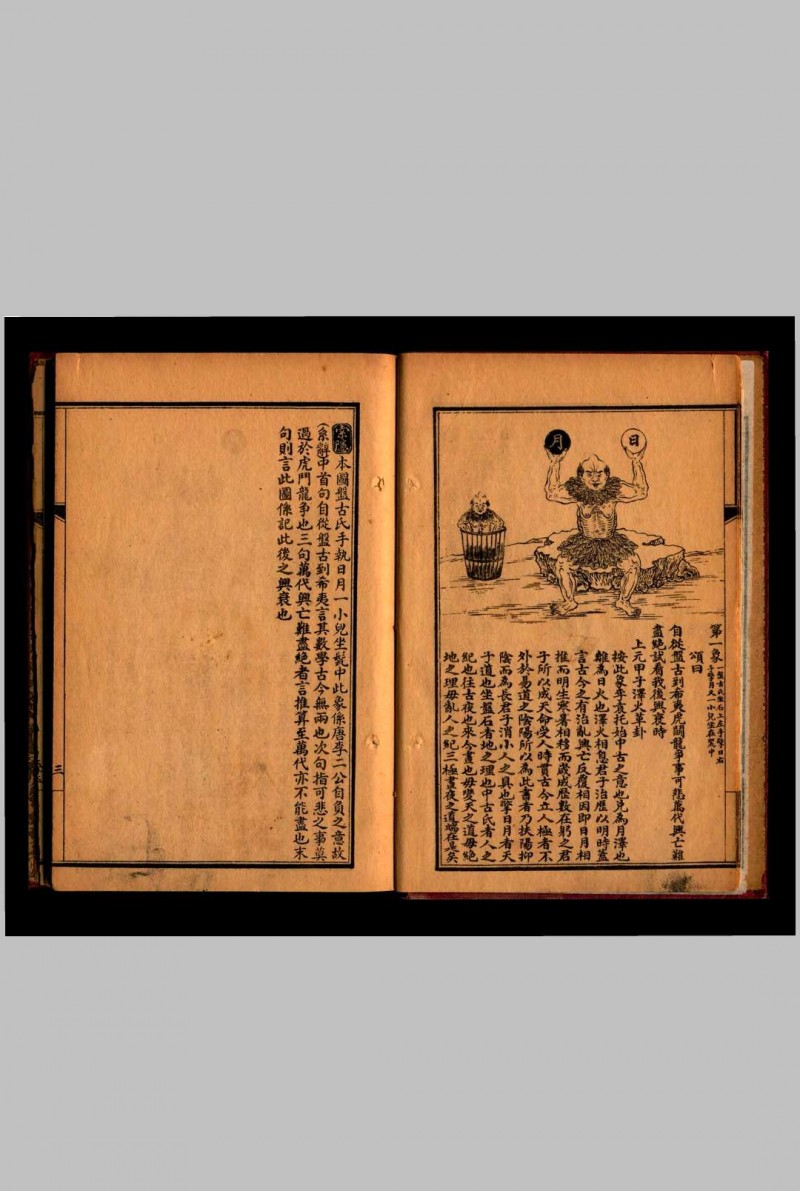 月
日
第一象 一盤古氏坐石上左手擎日右手擎月又一小兒坐在髡中
頌曰
自從盤古到希夷虎鬪龍爭事可悲萬代興亡難
盡絕試看我後興衰時
上元甲子澤火革卦
按此象李袁托始中古之意也兌為月澤也
離為日火也澤火相息君子治歷以明時蓋
言古今之有治亂興亡反覆相因即日月相
推而明生寒暑相移而歲成歷數在躬之君
子所以成天命受人時貫古今立人極者不
外於易道之陰陽所以為此書者乃扶陽抑
陰而為長君子消小人之具也擎日月者天
子道也坐盤石者地之理也中古氏者人之
紀也往古夜也來今晝也毋變天之道毋絕
地之理毋亂人之紀三極晝夜之道端在是矣
本圖盤古氏手執日月一小兒坐髡中此象係唐李二公自負之意故
（系辭中首句自從盤古到希夷言其數學古今無兩也次句指可悲之事莫
過於虎鬥龍爭也三句萬代興亡難盡絕者言推算至萬代亦不能盡也末
句則言此圖係記此後之興衰也
三